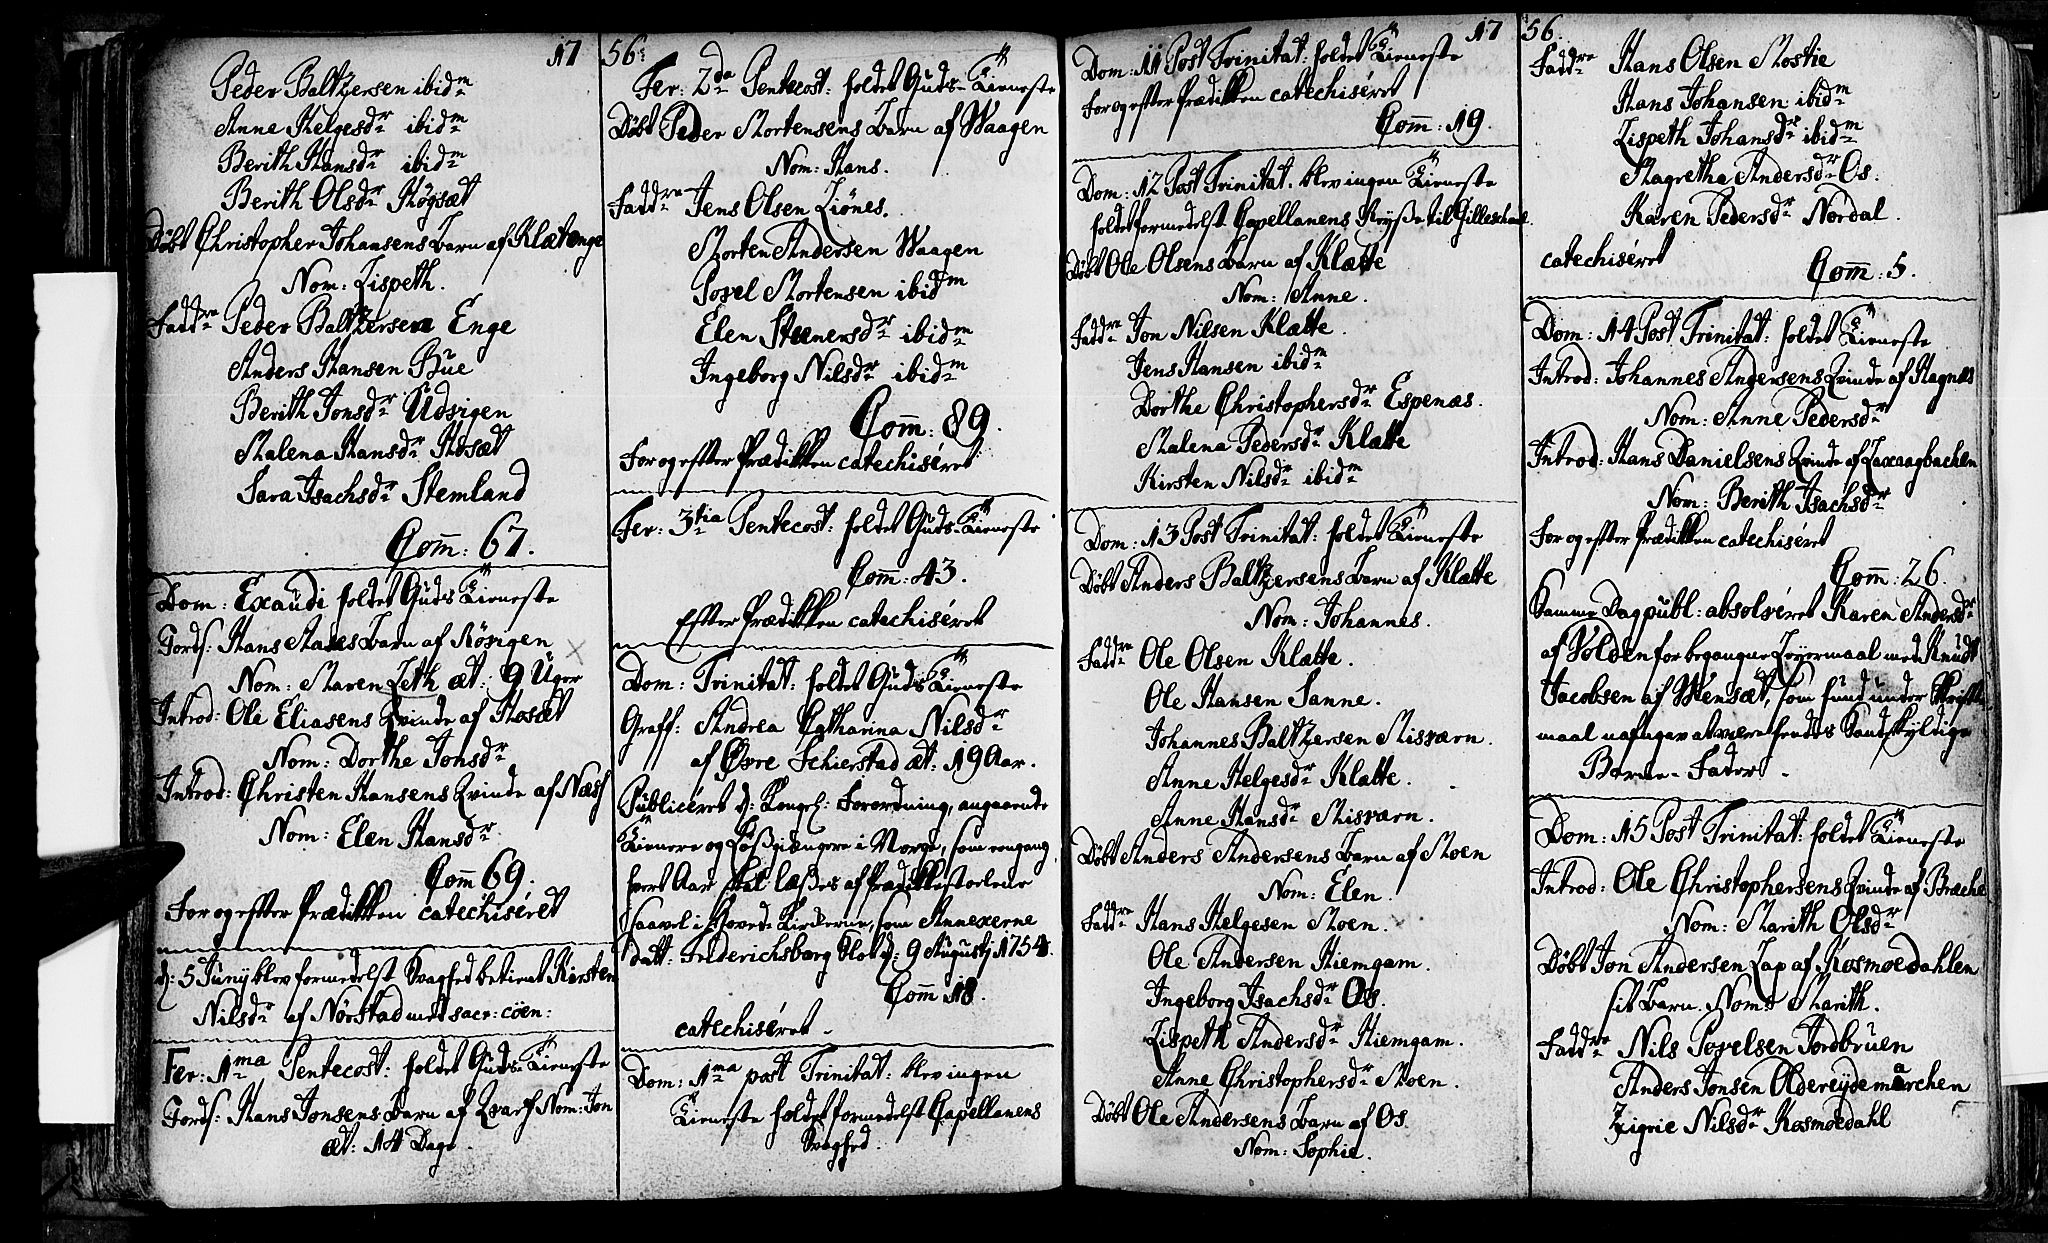 1756
Peder Baltzersen ibidm
Anne Helgesdr ibidm
Berith Hansdr ibidm
Berith Olsdr Høgsæt
Døbt Christopher Johansens Barn af Klætenge
Nom: Lispeth.
Faddre Peder Baltzersen Enge
Anders Hansen Bue
Berith Jonsdr Udsigen
Malena Hansdr Hosæt
Sara Isachsdr Stemland
Com̄: 67.
Dom: Exaudi holdet Guds Tieneste
Jords: Hans Aases Barn af Røsigen
Nom: Maren Zeth æt: 9 Uger
Introd: Ole Eliasens Qvinde af Hosæt
Nom: Dorthe Jonsdr
Introd: Christen Hansens Qvinde af Næss
Nom: Elen Hansdr
Com̄ 69.
For og efter Prædikken catechiséret
d: 5 Juny blev formedelst Svaghed betient Kirsten
Nilsdr af Nørstad med sacr: cöen:
Fer: 1ma Pentecost: holdet Guds-Tieneste
Jords: Hans Jonsens Barn af Qvarf Nom: Jon
æt: 14 Dage
Fer: 2da Pentecost: holdet Guds-Tieneste
Døbt Peder Mortensens Barn af Waagen
Nom: Hans.
Faddre Jens Olsen Liønes.
Morten Andersen Waagen
Povel Mortensen ibidm
Elen Steenersdr ibidm
Ingeborg Nilsdr ibidm
Com̄: 89.
For og efter Prædikken catechiséret
Fer: 3tia Pentecost: holdet Guds-Tieneste
Com̄: 43.
Efter Prædikken catechiséret
Dom: Trinitat: holdet Guds Tieneste
Graff: Andrea Catharina Nilsdr
af Øvre Schierstad æt: 19 Aar.
Publicéret d: Kongel: Forordning, angaaende
Tienere og Løsgiængere i Norge, som eengang
hvert Aar skal læses af Prædikkestolene
saavel i Hoved-Kirkerne, som Annexerne
Datt: Friderichsborg Slot d: 9 Augustj 1754.
Com̄ 18.
catechiséret
Dom: 1ma post Trinitat: blev ingen
Tieneste holdet formedelst Capellanens
Svaghed.
1756.
Dom: 11 Post Trinitat: holdet Tieneste
For og efter Prædikken catechiséret
Com̄: 19.
Dom: 12 Post Trinitat. blev ingen Tieneste
holdet formedelst Capellanens Reyse til Gilleschaal.
Døbt Ole Olsens Barn af Klætte
Nom: Anne.
Faddre Jon Nilsen Klætte.
Jens Hansen ibidm
Dorthe Christophersdr Espenæs.
Malena Pedersdr Klætte
Kirsten Nilsdr ibidm
Dom: 13 Post Trinitat: holdet Tieneste
Døbt Anders Baltzersens Barn af Klætte
Nom: Johannes.
Faddre Ole Olsen Klætte.
Ole Hansen Sanne.
Johannes Baltzersen Misværn.
Anne Helgesdr Klætte.
Anne Hansdr Misværn.
Døbt Anders Andersens Barn af Moen
Nom: Elen.
Faddre Hans Helgesen Moen.
Ole Andersen Hiemgam.
Ingeborg Isachsdr Os.
Lispeth Andersdr Hiemgam.
Anne Christophersdr Moen.
Døbt Ole Andersens Barn af Os.
Nom: Sophie.
Faddre Hans Olsen Mostie
Hans Johansen ibidm
Lispeth Johansdr ibidm
Magretha Andersdr Os.
Karen Pedersdr Nordal.
catechiséret
Com̄: 5.
Dom: 14 Post Trinitat: holdet Tieneste
Introd: Johannes Andersens Qvinde af Hagnæs
Nom: Anne Pedersdr
Introd: Hans Danielsens Qvinde af Laxaagbachen
Nom: Berith Isachsdr
For og efter Prædikken catechiséret
Com̄: 26.
Samme Dag publ: absolvéret Karen Andersdr
af Volden for begangne Leyermaal med Knudt
Jacobsen af Wensæt, som hun under Skrifte
maal nafngav at være hendes Sandskyldige
Barne-Fader.
Dom: 15 Post Trinitat: holdet Tieneste
Introd: Ole Christophersens Qvinde af Bræche
Nom: Marith Olsdr
Døbt Jon Andersen Lap af Kosmoedahlen
sit Barn. Nom: Marith.
Faddre Nils Povelsen Jordbruen
Anders Jonsen Oldereydemarchen
Zigrie Nilsdr Kosmoedahl